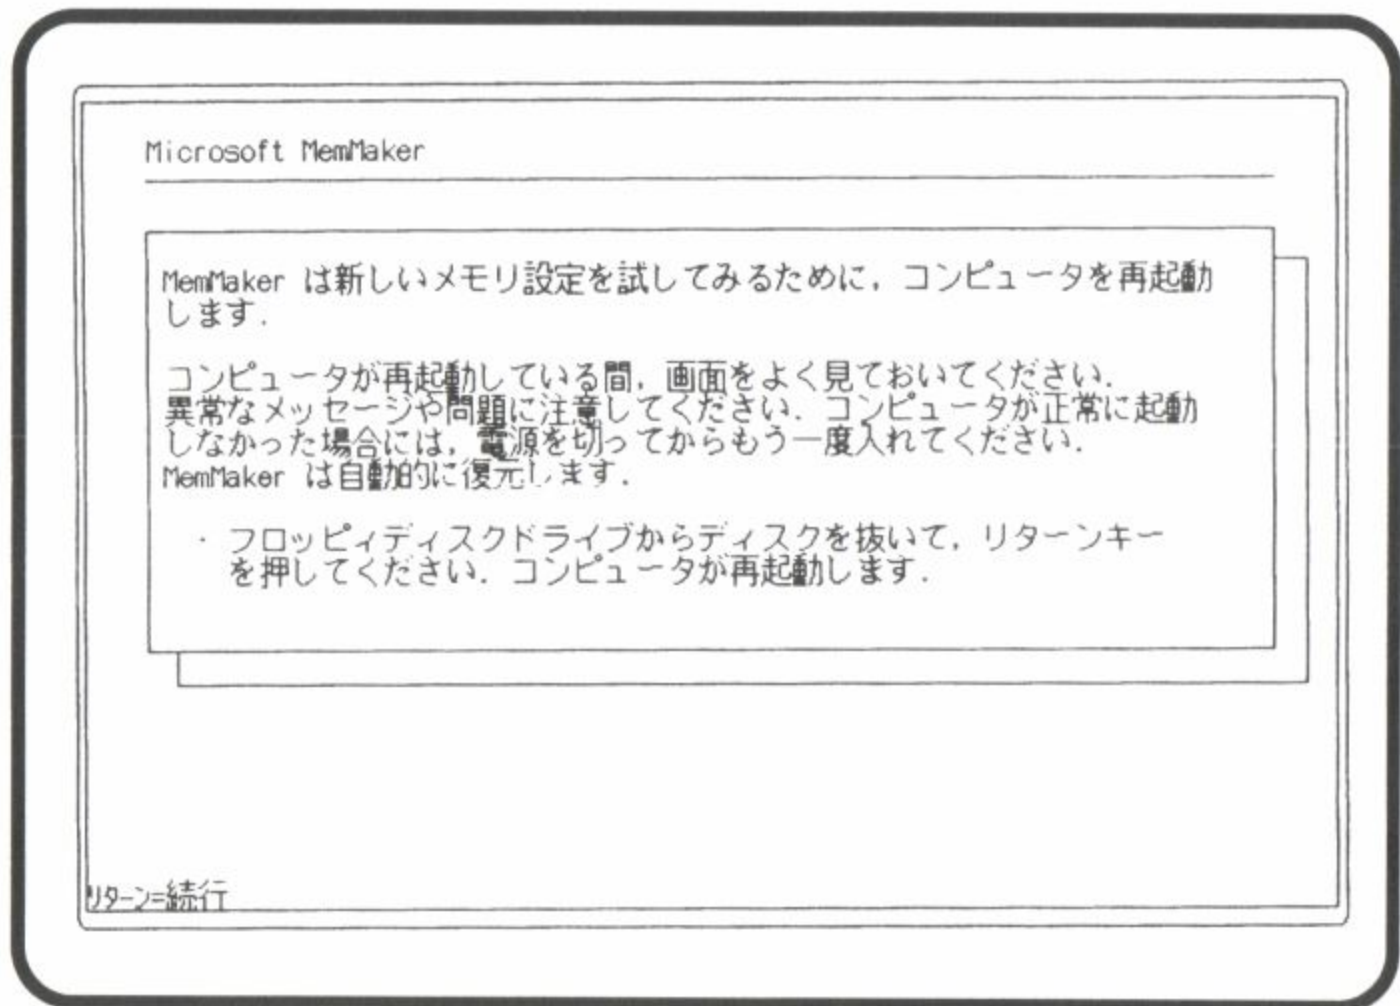 Microsoft MemMaker
MemMaker は新しいメモリ設定を試してみるために，コンピュータを再起動
します．
コンピュータが再起動している間，画面をよく見ておいてください．
異常なメッセージや問題に注意してください．コンピュータが正常に起動
しなかった場合には，電源を切ってからもう一度入れてください．
MemMaker は自動的に復元します．
・フロッピィディスクドライブからディスクを抜いて，リターンキー
を押してください．コンピュータが再起動します．
ﾘﾀｰﾝ=続行